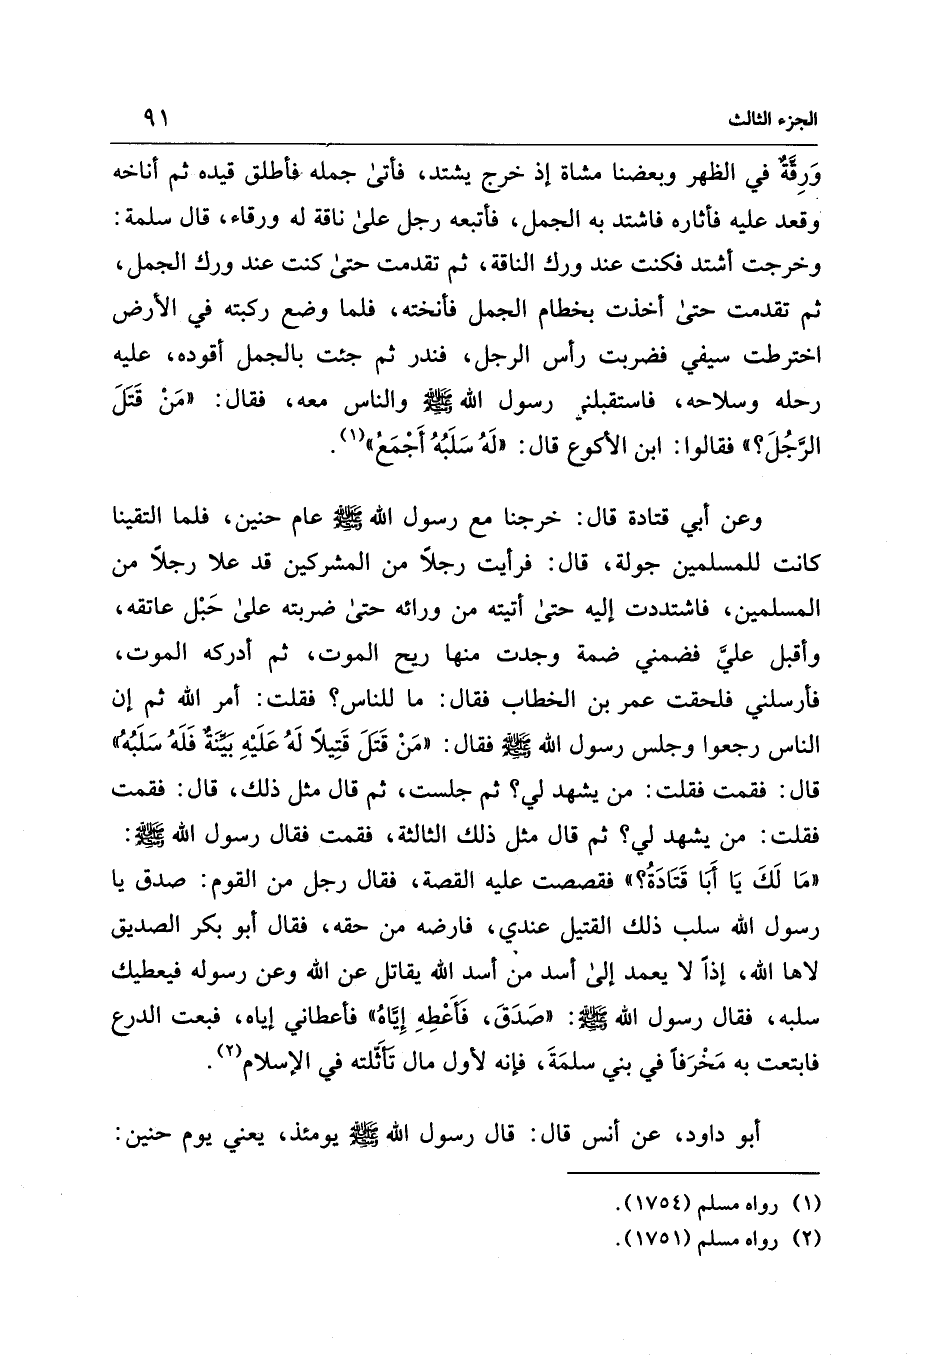 الجزء الثالث ٩١
وَرِقَّةٌ في الظهر وبعضنا مشاة إذ خرج يشتد، فأتىٰ جمله فأطلق قيده ثم أناخه
وقعد عليه فأثاره فاشتد به الجمل، فأتبعه رجل علىٰ ناقة له ورقاء، قال سلمة:
وخرجت أشتد فكنت عند ورك الناقة، ثم تقدمت حتىٰ كنت عند ورك الجمل،
ثم تقدمت حتىٰ أخذت بخطام الجمل فأنخته، فلما وضع ركبته في الأرض
اخترطت سيفي فضربت رأس الرجل، فندر ثم جئت بالجمل أقوده، عليه
رحله وسلاحه، فاستقبلني رسول الله ﷺ والناس معه، فقال: «مَنْ قَتَلَ
الرَّجُلَ؟» فقالوا: ابن الأكوع قال: «لَهُ سَلَبُهُ أَجْمَعُ»(١).
وعن أبي قتادة قال: خرجنا مع رسول الله ﷺ عام حنين، فلما التقينا
كانت للمسلمين جولة، قال: فرأيت رجلاً من المشركين قد علا رجلاً من
المسلمين، فاشتددت إليه حتىٰ أتيته من ورائه حتىٰ ضربته علىٰ حَبْل عاتقه،
وأقبل عليَّ فضمني ضمة وجدت منها ريح الموت، ثم أدركه الموت،
فأرسلني فلحقت عمر بن الخطاب فقال: ما للناس؟ فقلت: أمر الله ثم إن
الناس رجعوا وجلس رسول الله ﷺ فقال: «مَنْ قَتَلَ قَتِيلاً لَهُ عَلَيْهِ بَيِّنَةٌ فَلَهُ سَلَبُهُ»
قال: فقمت فقلت: من يشهد لي؟ ثم جلست، ثم قال مثل ذلك، قال: فقمت
فقلت: من يشهد لي؟ ثم قال مثل ذلك الثالثة، فقمت فقال رسول الله ﷺ:
«مَا لَكَ يَا أَبَا قَتَادَةُ؟» فقصصت عليه القصة، فقال رجل من القوم: صدق يا
رسول الله سلب ذلك القتيل عندي، فارضه من حقه، فقال أبو بكر الصديق
لاها الله، إذاً لا يعمد إلىٰ أسد من أسد الله يقاتل عن الله وعن رسوله فيعطيك
سلبه، فقال رسول الله ﷺ: «صَدَقَ، فَأَعْطِهِ إِيَّاهُ» فأعطاني إياه، فبعت الدرع
فابتعت به مَخْرَفاً في بني سلمَةَ، فإنه لأول مال تَأَثَّلته في الإسلام(٢).
أبو داود، عن أنس قال: قال رسول الله ﷺ يومئذ، يعني يوم حنين:
(١) رواه مسلم (١٧٥٤).
(٢) رواه مسلم (١٧٥١).